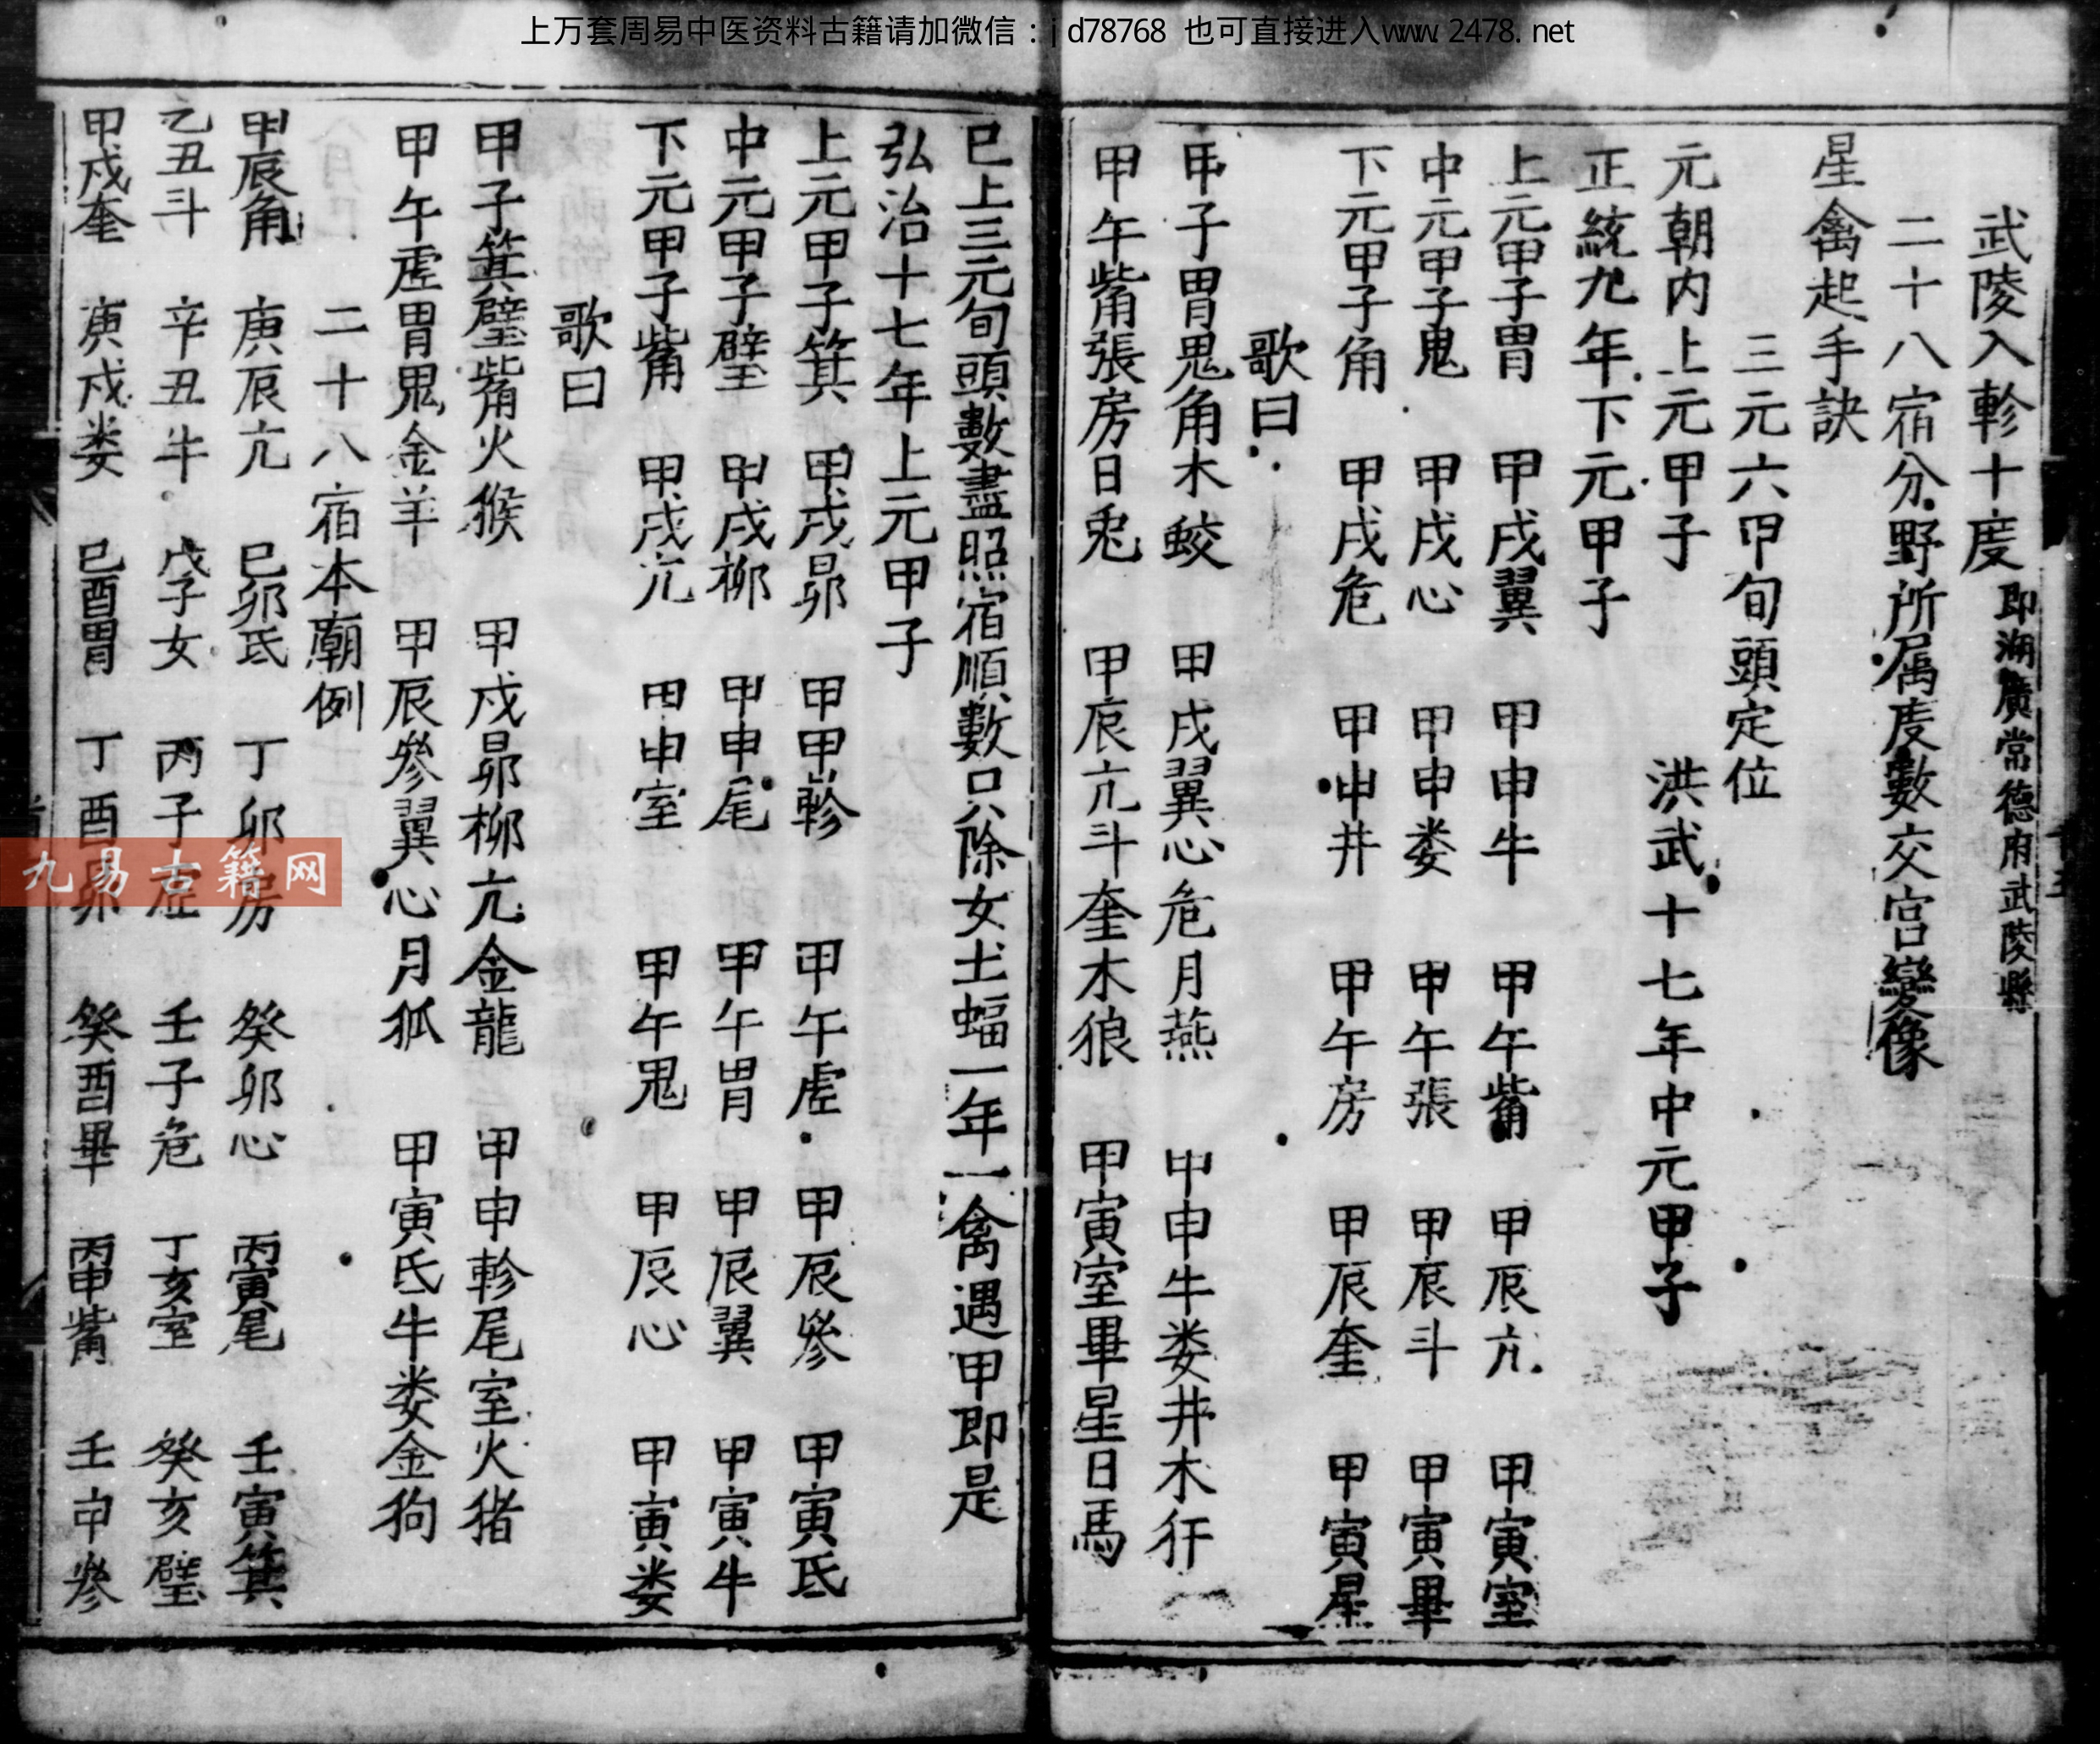 上万套周易中医资料古籍请加微信：jd78768 也可直接进入www.2478.net
武陵入軫十度 即湖廣常德府武陵縣
二十八宿分野所属度數交宮變像
星禽起手訣
三元六甲旬頭定位
元朝内上元甲子 洪武十七年中元甲子
正統九年下元甲子
上元甲子胃 甲戌翼 甲申牛 甲午觜 甲辰亢 甲寅室
中元甲子鬼 甲戌心 甲申娄 甲午張 甲辰斗 甲寅畢
下元甲子角 甲戌危 甲申井 甲午房 甲辰奎 甲寅星
歌曰
甲子胃鬼角木蛟 甲戌翼心危月燕 甲申牛娄井木犴
甲午觜張房日兎 甲辰亢斗奎木狼 甲寅室畢星日馬
已上三元旬頭數盡照宿順數只除女土蝠一年一禽遇甲即是
弘治十七年上元甲子
上元甲子箕 甲戌昴 甲申軫 甲午虗 甲辰參 甲寅氐
中元甲子璧 甲戌柳 甲申尾 甲午胃 甲辰翼 甲寅牛
下元甲子觜 甲戌亢 甲申室 甲午鬼 甲辰心 甲寅娄
歌曰
甲子箕璧觜火猴 甲戌昴柳亢金龍 甲申軫尾室火猪
甲午虗胃鬼金羊 甲辰參翼心月狐 甲寅氐牛娄金狗
二十八宿本廟例
甲辰角 庚辰亢 已卯氐 丁卯房 癸卯心 丙寅尾 壬寅箕
乙丑斗 辛丑牛 戊子女 丙子虗 壬子危 丁亥室 癸亥璧
甲戌奎 庚戌娄 已酉胃 丁酉昴 癸酉畢 丙申觜 壬申參
九易古籍网